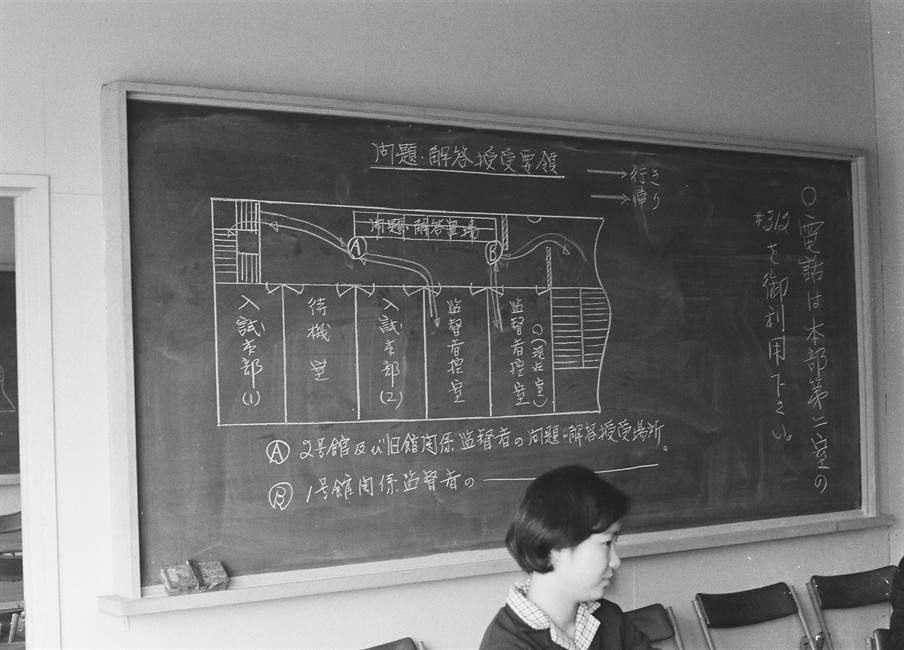 問題・解答授受要領
→行き
→帰り
○電話は本部第二室の
#312を御利用下さい。
問題・解答置場
A
B
入試本部(1)
待機室
入試本部(2)
監督者控室
監督者控室
Ⓐ 2号館及び旧館関係監督者の問題・解答授受場所。
Ⓑ 1号館関係監督者の